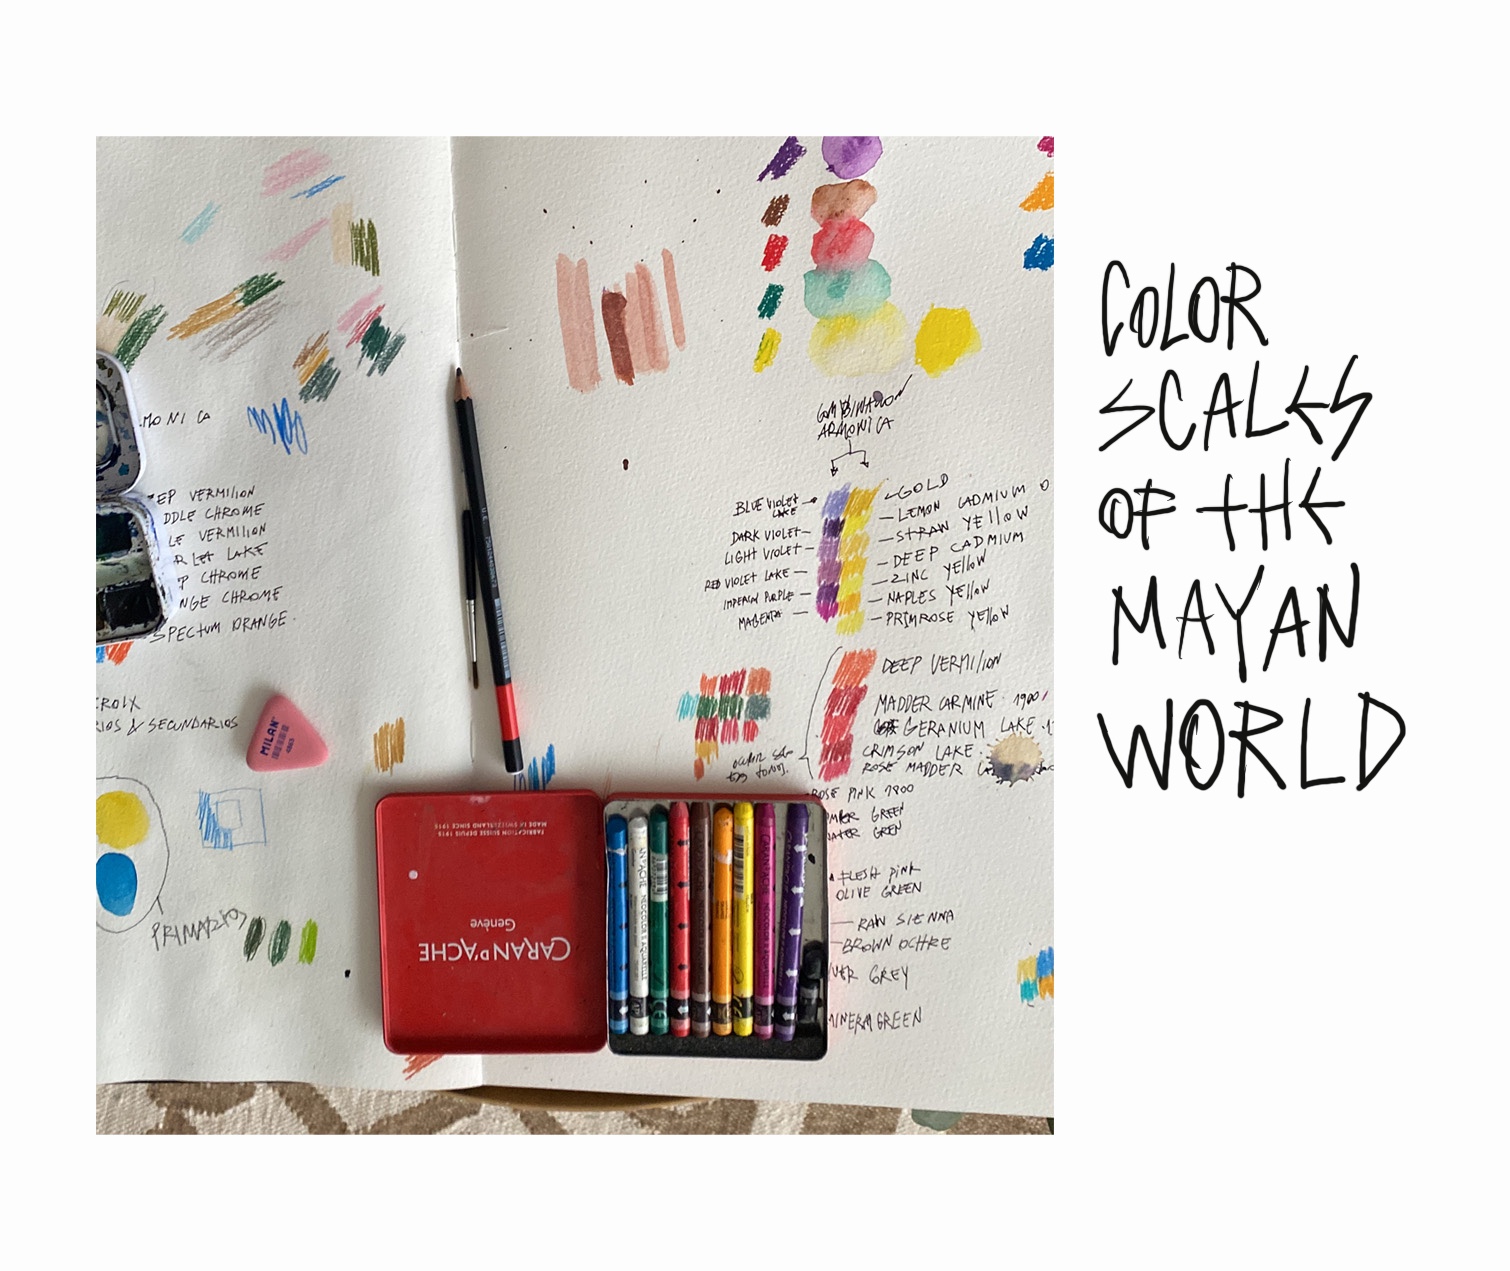 COLOR
SCALES
OF THE
MAYAN
WORLD
MONICA
EP VERMILION
DDLE CHROME
LE VERMILION
RLET LAKE
P CHROME
NGE CHROME
SPECTUM ORANGE
CROIX
IOS & SECUNDARIOS
MILAN
PRIMARIOS
COMBINACION
ARMONICA
BLUE VIOLET
LAKE
DARK VIOLET
LIGHT VIOLET
RED VIOLET LAKE
IMPERIAL PURPLE
MAGENTA
GOLD
LEMON CADMIUM
STRAW YELLOW
DEEP CADMIUM
ZINC YELLOW
NAPLES YELLOW
PRIMROSE YELLOW
DEEP VERMILION
MADDER CARMINE · 1900
GERANIUM LAKE
CRIMSON LAKE
ROSE MADDER
ROSE PINK 1900
GREEN
WATER GREN
FLESH PINK
OLIVE GREEN
RAW SIENNA
BROWN OCHRE
VER GREY
GREEN
FABRICATION SUISSE DEPUIS 1915
MADE IN SWITZERLAND SINCE 1915
CARAN D'ACHE
Genève